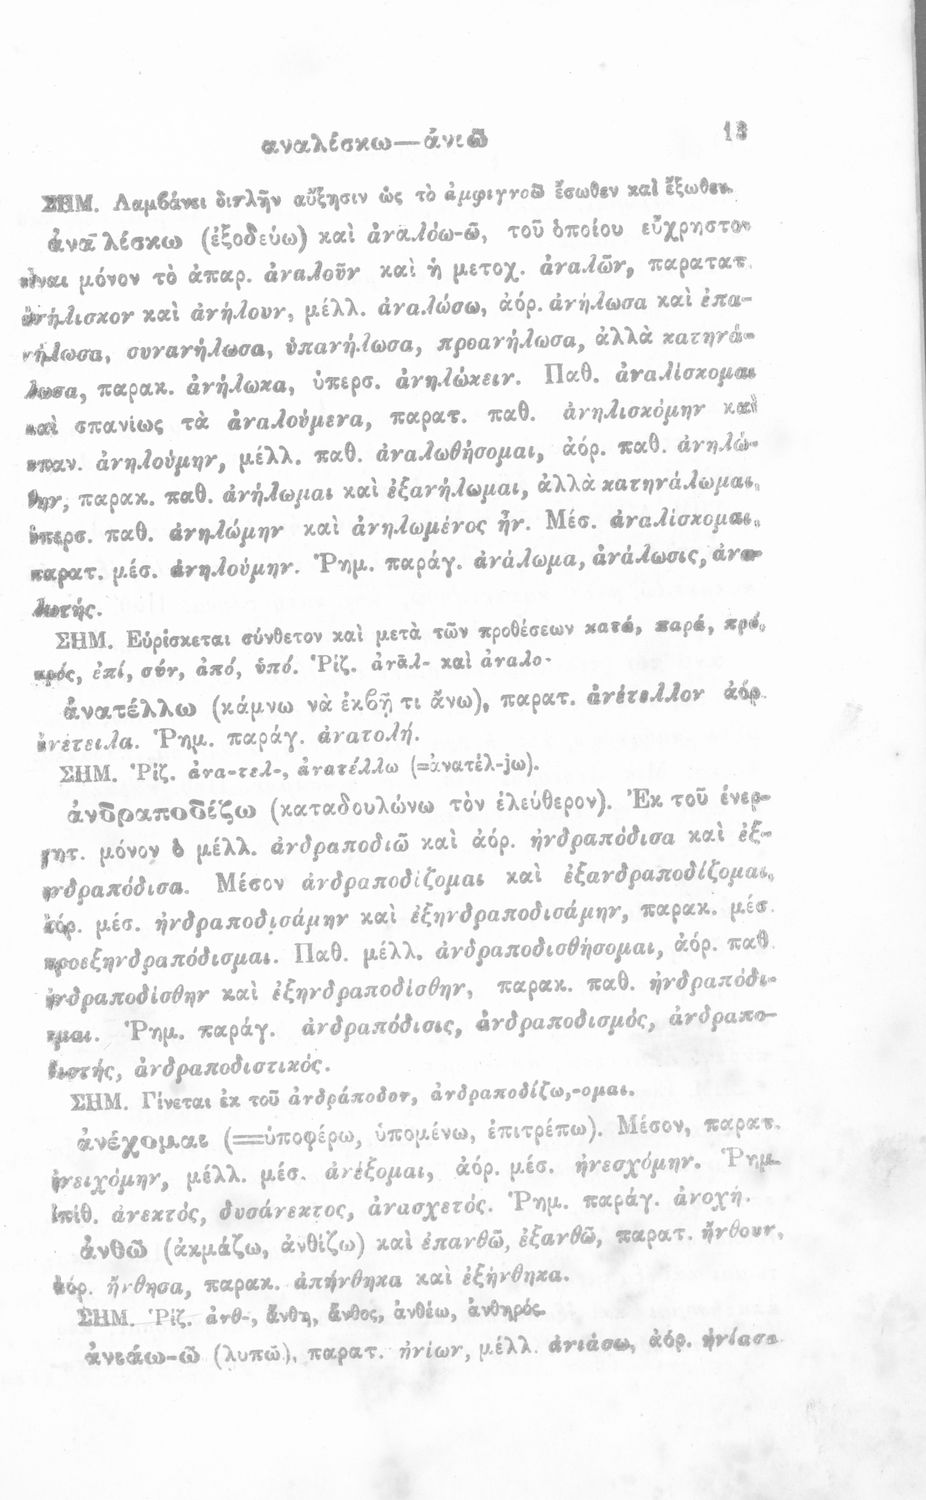 αναλέσκω—ἀνιῶ 13
ΣΗΜ. Λαμβάνει διπλῆν αὔξησιν ὡς τὸ ἀμφιγνοῶ ἔσωθεν καὶ ἔξωθεν.
ἀνᾱλέσκω (ἐξοδεύω) καὶ ἀναλόω-ῶ, τοῦ ὁποίου εὔχρηστον
εἶναι μόνον τὸ ἀπαρ. ἀναλοῦν καὶ ἡ μετοχ. ἀναλῶν, παρατατ.
ἀνήλισκον καὶ ἀνήλουν, μέλλ. ἀναλώσω, ἀόρ. ἀνήλωσα καὶ ἐπα-
νήλωσα, συνανήλωσα, ὑπανήλωσα, προανήλωσα, ἀλλὰ κατηνά-
λωσα, παρακ. ἀνήλωκα, ὑπερσ. ἀνηλώκειν. Παθ. ἀναλίσκομαι
καὶ σπανίως τὰ ἀναλούμενα, παρατ. παθ. ἀνηλισκόμην καὶ
σπαν. ἀνηλούμην, μέλλ. παθ. ἀναλωθήσομαι, ἀόρ. παθ. ἀνηλώ-
θην, παρακ. παθ. ἀνήλωμαι καὶ ἐξανήλωμαι, ἀλλὰ κατηνάλωμαι,
ὑπερσ. παθ. ἀνηλώμην καὶ ἀνηλωμένος ἦν. Μέσ. ἀναλίσκομαι,
παρατ. μέσ. ἀνηλούμην. Ῥημ. παράγ. ἀνάλωμα, ἀνάλωσις, ἀνα-
λωτής.
ΣΗΜ. Εὑρίσκεται σύνθετον καὶ μετὰ τῶν προθέσεων κατά, παρά, πρό,
πρός, ἐπί, σύν, ἀπό, ὑπό. Ῥίζ. ἀνᾱλ- καὶ ἀναλο-
ἀνατέλλω (κάμνω νὰ ἐκβῇ τι ἄνω), παρατ. ἀνέτελλον ἀόρ.
ἀνέτειλα. Ῥημ. παράγ. ἀνατολή.
ΣΗΜ. Ῥίζ. ἀνα-τελ-, ἀνατέλλω (=ἀνατέλ-jω).
ἀνδραποδέζω (καταδουλώνω τὸν ἐλεύθερον). Ἐκ τοῦ ἐνερ-
γητ. μόνον ὁ μέλλ. ἀνδραποδιῶ καὶ ἀόρ. ἠνδραπόδισα καὶ ἐξ-
ηνδραπόδισα. Μέσον ἀνδραποδίζομαι καὶ ἐξανδραποδίζομαι,
ἀόρ. μέσ. ἠνδραποδισάμην καὶ ἐξηνδραποδισάμην, παρακ. μέσ.
προεξηνδραπόδισμαι. Παθ. μέλλ. ἀνδραποδισθήσομαι, ἀόρ. παθ.
ἠνδραποδίσθην καὶ ἐξηνδραποδίσθην, παρακ. παθ. ἠνδραπόδι-
σμαι. Ῥημ. παράγ. ἀνδραπόδισις, ἀνδραποδισμός, ἀνδραπο-
διστής, ἀνδραποδιστικός.
ΣΗΜ. Γίνεται ἐκ τοῦ ἀνδράποδον, ἀνδραποδίζω,-ομαι.
ἀνέχομαι (=ὑποφέρω, ὑπομένω, ἐπιτρέπω). Μέσον, παρατ.
ἠνειχόμην, μέλλ. μέσ. ἀνέξομαι, ἀόρ. μέσ. ἠνεσχόμην. Ῥημ.
ἐπίθ. ἀνεκτός, δυσάνεκτος, ἀνασχετός. Ῥημ. παράγ. ἀνοχή.
ἀνθῶ (ἀκμάζω, ἀνθίζω) καὶ ἐπανθῶ, ἐξανθῶ, παρατ. ἤνθουν,
ἀόρ. ἤνθησα, παρακ. ἀπήνθηκα καὶ ἐξήνθηκα.
ΣΗΜ. Ῥίζ. ἀνθ-, ἄνθη, ἄνθος, ἀνθέω, ἀνθηρός.
ἀνιάω-ῶ (λυπῶ), παρατ. ἠνίων, μέλλ. ἀνιάσω, ἀόρ. ἠνίασα